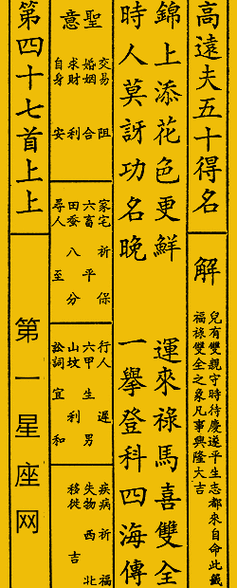 高遠夫五十得名
解
兒有雙親守時待慶遂平生志都來自命此籤
福祿雙全之象凡事興隆大吉
錦上添花色更鮮 運來祿馬喜雙全
時人莫訝功名晚 一舉登科四海傳
聖意
交易 阻
婚姻 合
求財 利
自身 安
家宅 祈保
六畜 平
田蚕 八分
尋人 至
行人 遲
六甲 生男
山坟 利
訟詞 宜和
疾病 祈福
失物 西北
移徙 吉
第四十七首上上
第一星座网